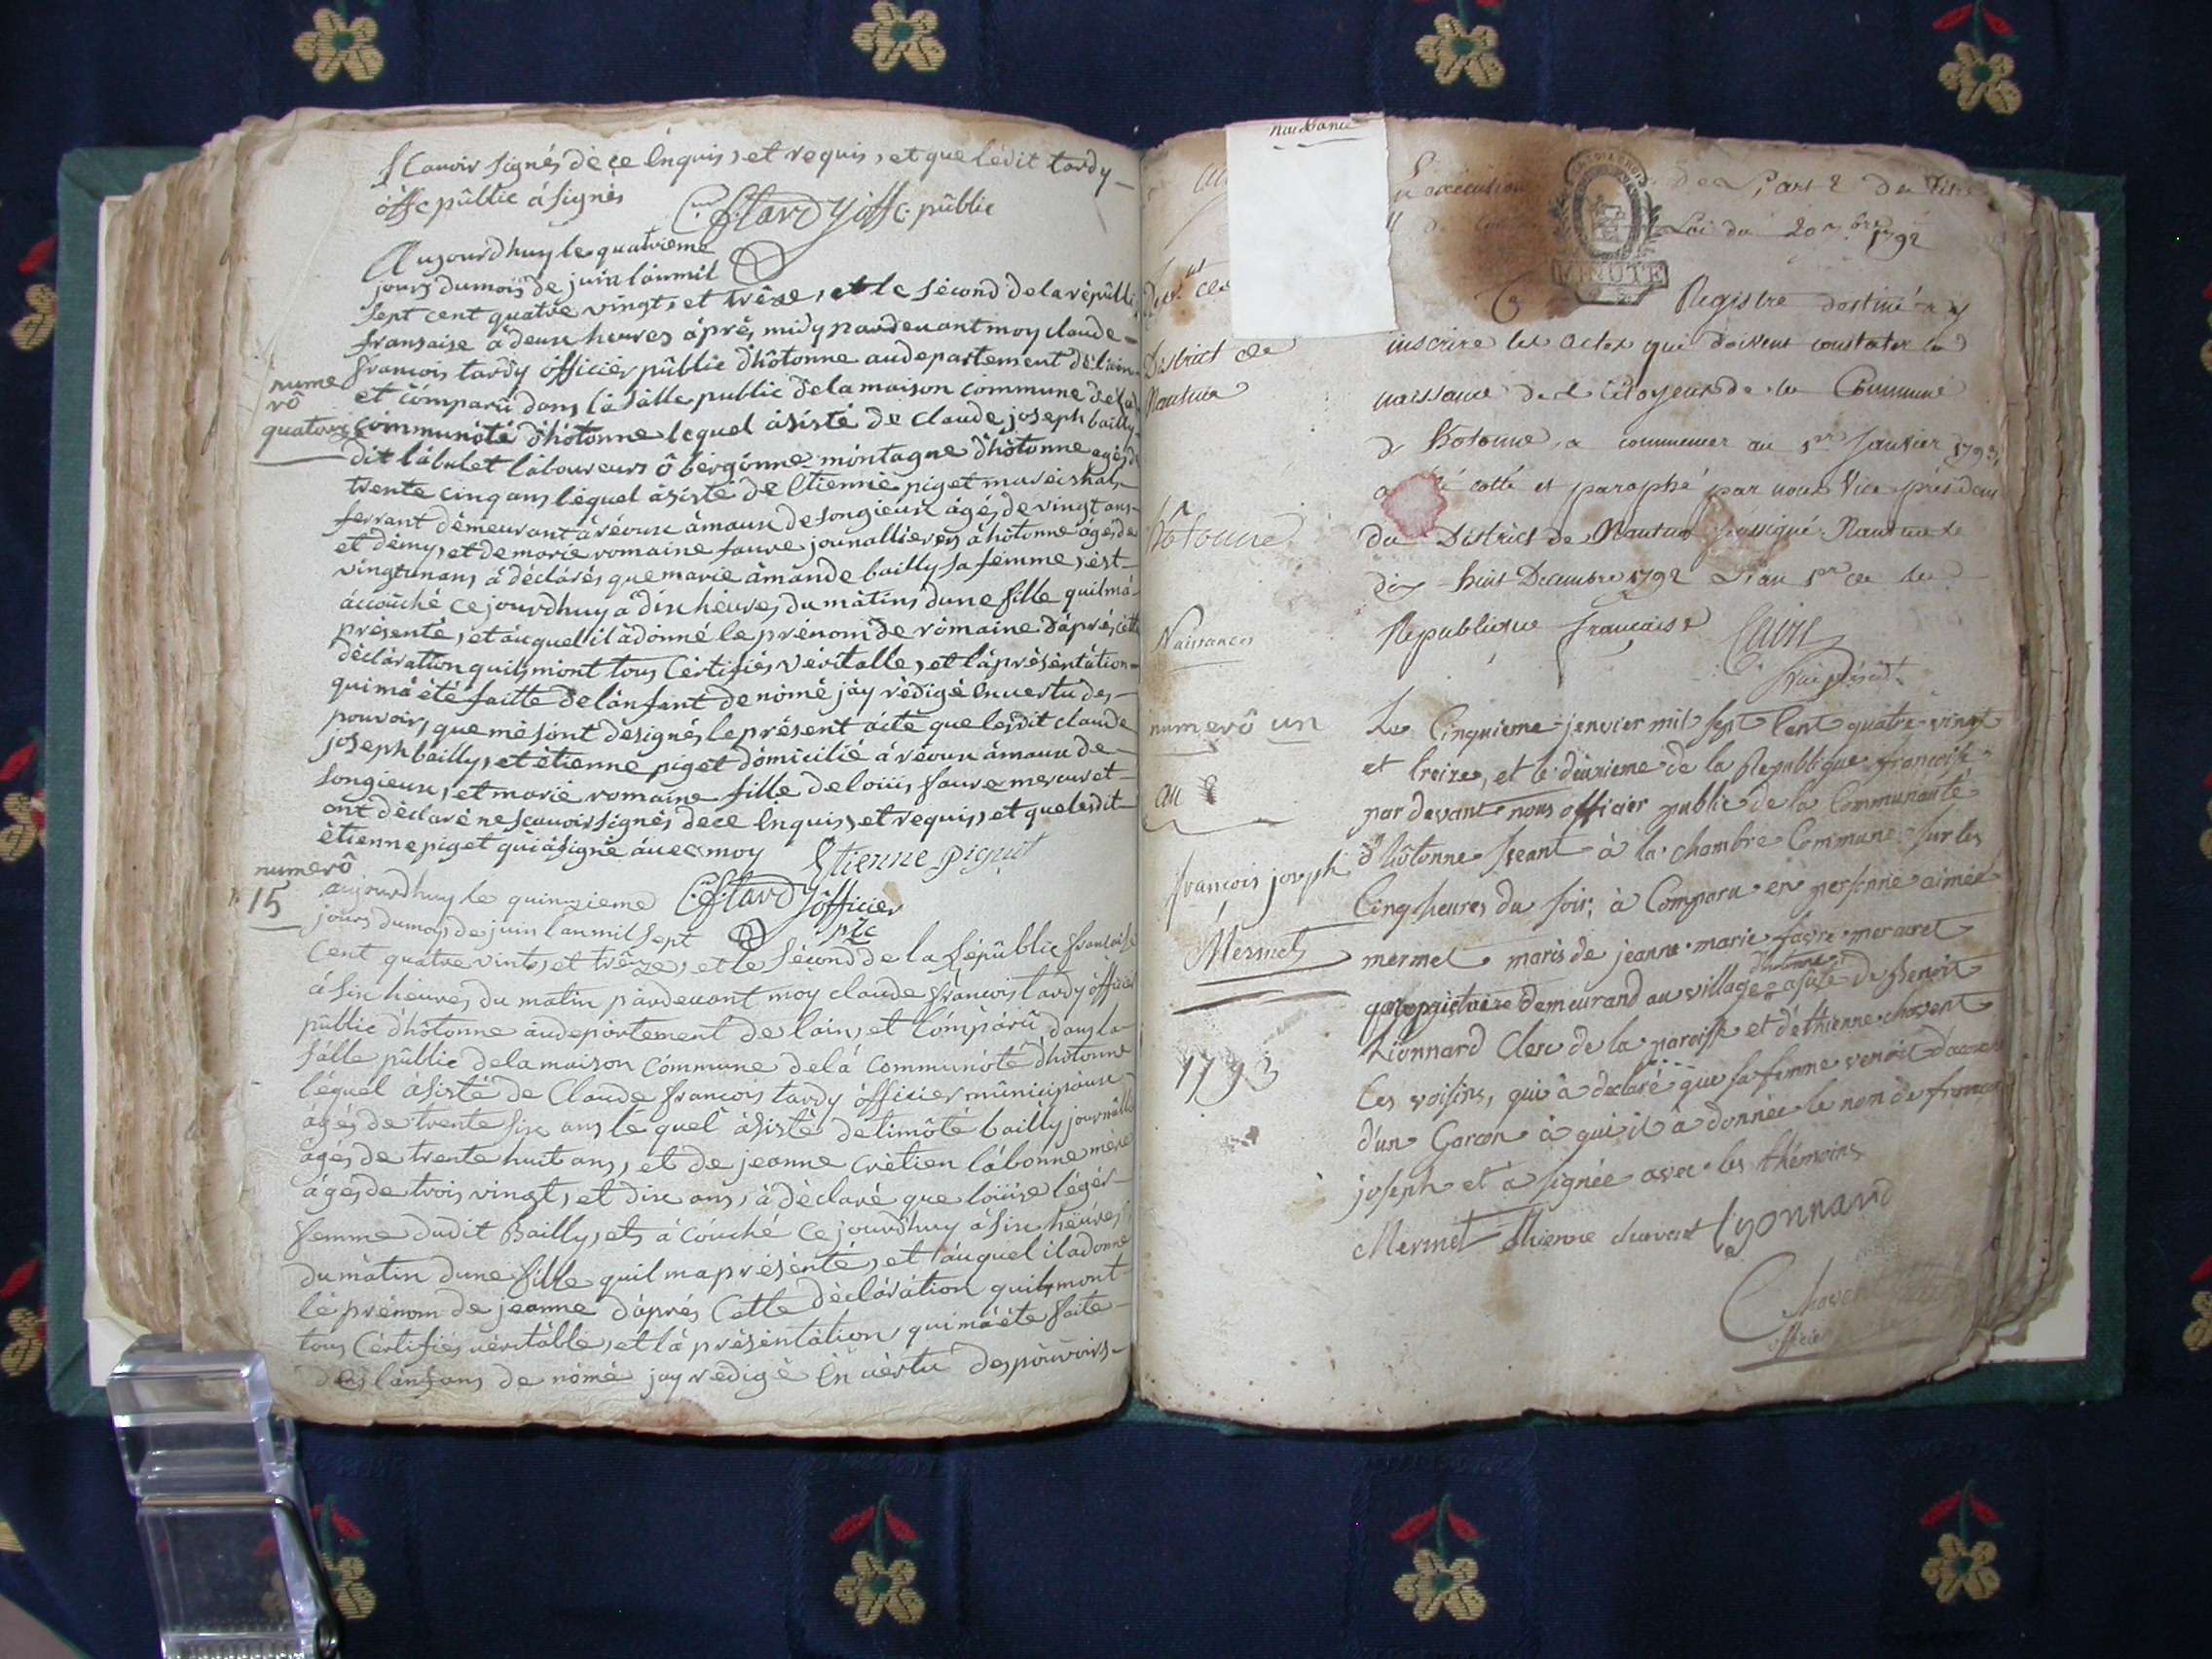 Scavoir signés de ce énquis, et requis, et que lédit tardy
óffc pûblic á signés C. f. tardy offc. pûblic
Aujourdhuy le quatrieme
jours dumois de juin lánmil
sept cent quatre vingt, et trêze, et le sécond de la républi
fransaise á deux heures áprés midy pardevant moy claude
francois tardy ófficier pûblic dhôtonne audepartement de láin
et cómparû dans lá sálle public de la maison commune de la
nume
rô
quatorze
commúnôté dhótonne lequel ásisté de claude joseph bailly
dit lábulet láboureurs ô bérgónne móntagne dhôtonne agés de
trente cinq ans léquel ásisté de Etienne piget maréishal
ferrant démeurant á réoux ámaux de songieux ágés de vingt ans
et démy, et de marie romaine faure journallieres á hôtonne ágés de
vingt un ans á décláres que marie ámande bailly sa fémme, ést
áccoûché ce jourdhuy á dix héures du mátins dune fille quil má
présenté, et áuquel il á donné le prénom de rômaine dáprés cette
décláration quils mónt tous Cértifiés véritalle, et lá présentátion
qui má été faitte de lánfant de nómé jáy rédigé én vertu des
pouvoirs que mé sónt désignés le présent ácte que lesdit claude
joseph bailly, et étienne piget dómicilié á réoux ámaux de
songieux, et marie romaine fille de loüis faure mercuret
ont décláré ne scavoir signés de ce énquis, et requis, et que lesdit
étienne piget qui á signé ávec moy Etienne piguet
numerô
15
aujourdhuy le quinzieme C. f. tardy ófficier
jours dumois de juin lanmil sept plc
Cent quatre vint, et trêze, et le sécond de la républic fransaise
á six heures du matin párdevant moy claude francois tardy ófficier
pûblic dhôtonne áudepártement de láin, et Cómpárû dans la
sálle pûblic de la maison cómmune de lá communôté dhôtonne
léquél ásisté de Claude francois tardy ófficier mûnicipáux
ágés de trente six ans le quel ásisté de timôté bailly journallie
agés de trente huit ans, et de jeanne crétien lábonne mére
ágés de trois vingt, et dix ans, á déclaré que loüise légér
femme dudit Bailly, ets á cóuché ce jourdhuy á six hëures
du mátin dune fille quil ma présénté, et áuquel il adonné
lé prénom de jeanne dáprés Cette décláration quils mont
tous Cértifiés véritáble, et lá présentátion qui má été faite
des lánfans de nómé jay redigé én vértu des póuvoirs
naissance
L'exécution de l'art 2 du titre
Loi du 20 7bre 1792
MINUTE
Ce Registre destiné à y
District de
inscrire les actes qui doivent constater la
Nantua
naissance des Citoyens de la Commune
d Hotonne, a commencer au 1er Janvier 1793,
a été cotté et paraphé par nous Vice président
hôtonne
du District de Nantua soussigné. Nantua le
dix huit Decembre 1792 L'an 1er de la
Naissances
Republique francaise
numerô un
Le Cinquieme janvier mil sept Cent quatre-vingt
et treize, et le deuxieme de la Republique francoise
au
par devant nous officier public de la Communauté
francois joseph
d'hôtonne seant à la chambre Commune sur les
Cinq heures du soir, à Comparu en personne aimée
Mermet
mermet maris de jeanne marie favre mercuret
d'hotonne
propriétaire demeurand au village asisté de Benoit
Lionnard Clerc de la paroisse et d'ethienne chavent
1793
Ces voisins, qui à declaré que sa femme venoit d'acouch
d'un Garcon à qui il à donnée le nom de francois
joseph et à signée avec les thémoins
Mermet Ethienne charvent Lyonnard
officier